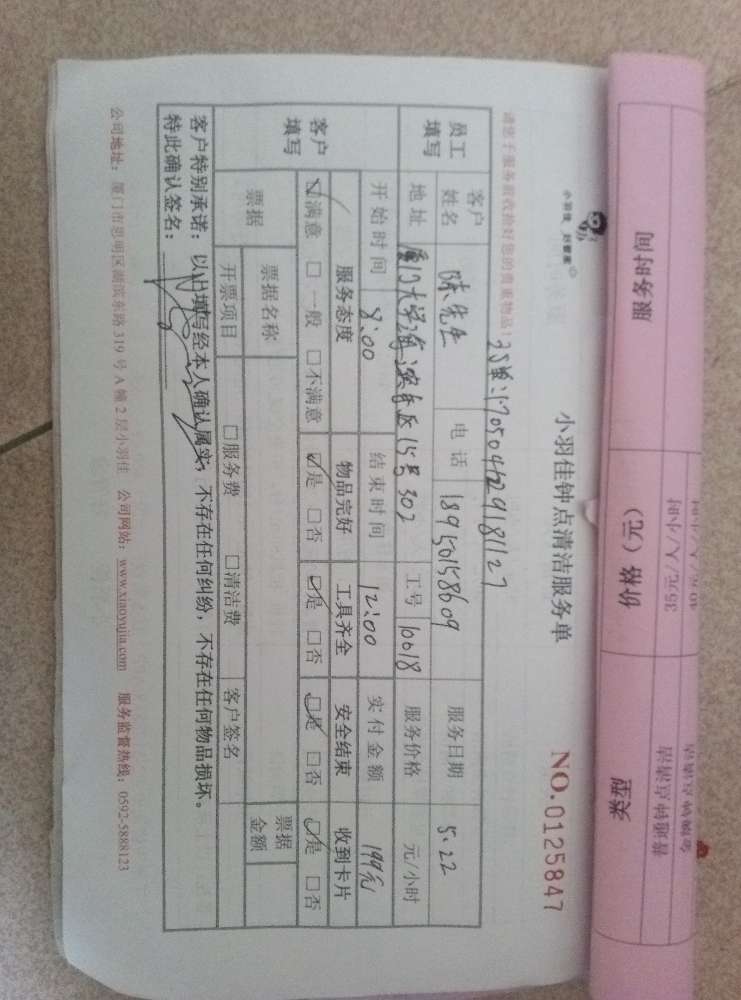 小羽佳钟点清洁服务单
NO.0125847
小羽佳 好管家
请您于服务前收拾好您的贵重物品!
订单:170504129181127
员工填写
客户姓名 陈先生 电话 18950158609 服务日期 5.22
地址 厦门大学海滨东区15号302 工号 10018 服务价格 元/小时
客户填写
开始时间 8:00 结束时间 12:00 实付金额 199元
服务态度 物品完好 工具齐全 安全结束 收到卡片
☑满意 □一般 □不满意 ☑是 □否 ☑是 □否 ☑是 □否 ☑是 □否
票据 票据名称 票据金额
开票项目 □服务费 □清洁费 客户签名
客户特别承诺:以上填写经本人确认属实,不存在任何纠纷,不存在任何物品损坏。
特此确认签名:
公司地址:厦门市思明区湖滨东路319号A幢2层小羽佳 公司网站:www.xiaoyujia.com 服务监督热线:0592-5888123
服务时间 价格(元) 类型
35元/人/小时